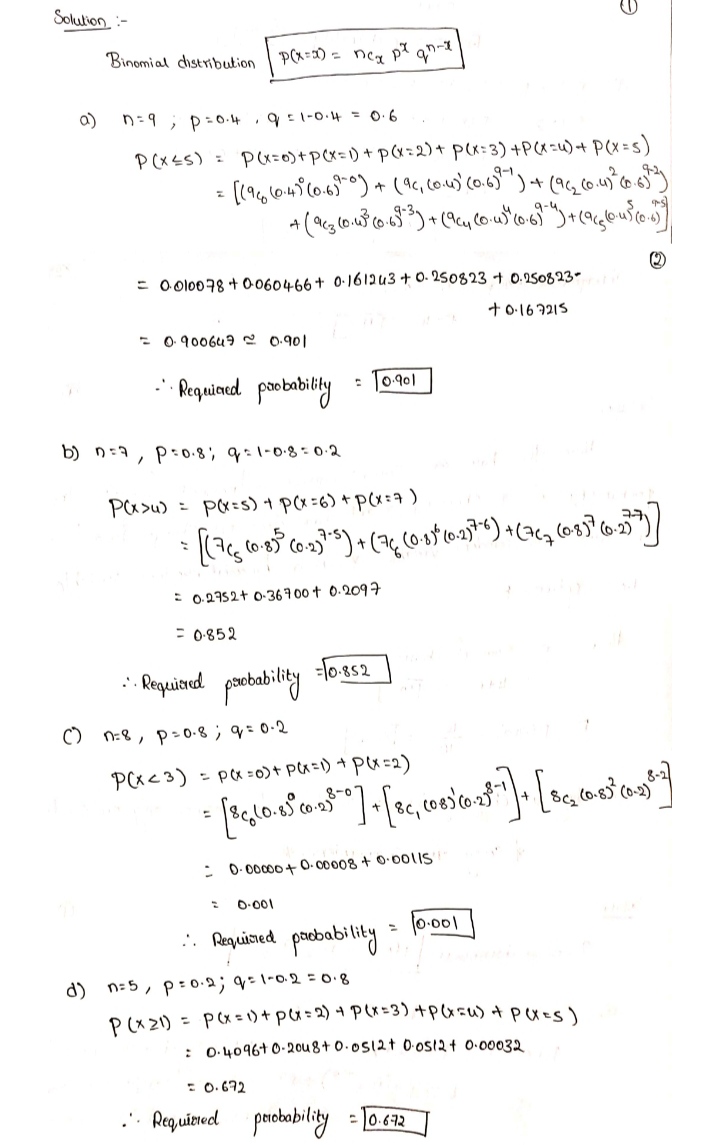 ①
Solution :-
Binomial distribution P(X=x) = nCx p^x q^n-x
a) n=9 ; p=0.4 , q=1-0.4 = 0.6
P(X≤5) = P(X=0)+P(X=1)+P(X=2)+P(X=3)+P(X=4)+P(X=5)
= [(9C0 (0.4)^0 (0.6)^9-0) + (9C1 (0.4)^1 (0.6)^9-1) + (9C2 (0.4)^2 (0.6)^9-2)
+ (9C3 (0.4)^3 (0.6)^9-3) + (9C4 (0.4)^4 (0.6)^9-4) + (9C5 (0.4)^5 (0.6)^9-5)]
②
= 0.010078 + 0.060466 + 0.161243 + 0.250823 + 0.250823-
+ 0.167215
= 0.900647 ≃ 0.901
∴ Required probability = 0.901
b) n=7 , P=0.8 ; q=1-0.8=0.2
P(X>4) = P(X=5) + P(X=6) + P(X=7)
= [(7C5 (0.8)^5 (0.2)^7-5) + (7C6 (0.8)^6 (0.2)^7-6) + (7C7 (0.8)^7 (0.2)^7-7)]
= 0.2752 + 0.36700 + 0.2097
= 0.852
∴ Required probability = 0.852
c) n=8 , p=0.8 ; q=0.2
P(X<3) = P(X=0)+P(X=1)+P(X=2)
= [8C0 (0.8)^0 (0.2)^8-0] + [8C1 (0.8)^1 (0.2)^8-1] + [8C2 (0.8)^2 (0.2)^8-2]
= 0.00000 + 0.00008 + 0.00115
= 0.001
∴ Required probability = 0.001
d) n=5 , p=0.2 ; q=1-0.2=0.8
P(X≥1) = P(X=1)+P(X=2)+P(X=3)+P(X=4)+P(X=5)
= 0.4096 + 0.2048 + 0.0512 + 0.0512 + 0.00032
= 0.672
∴ Required probability = 0.672